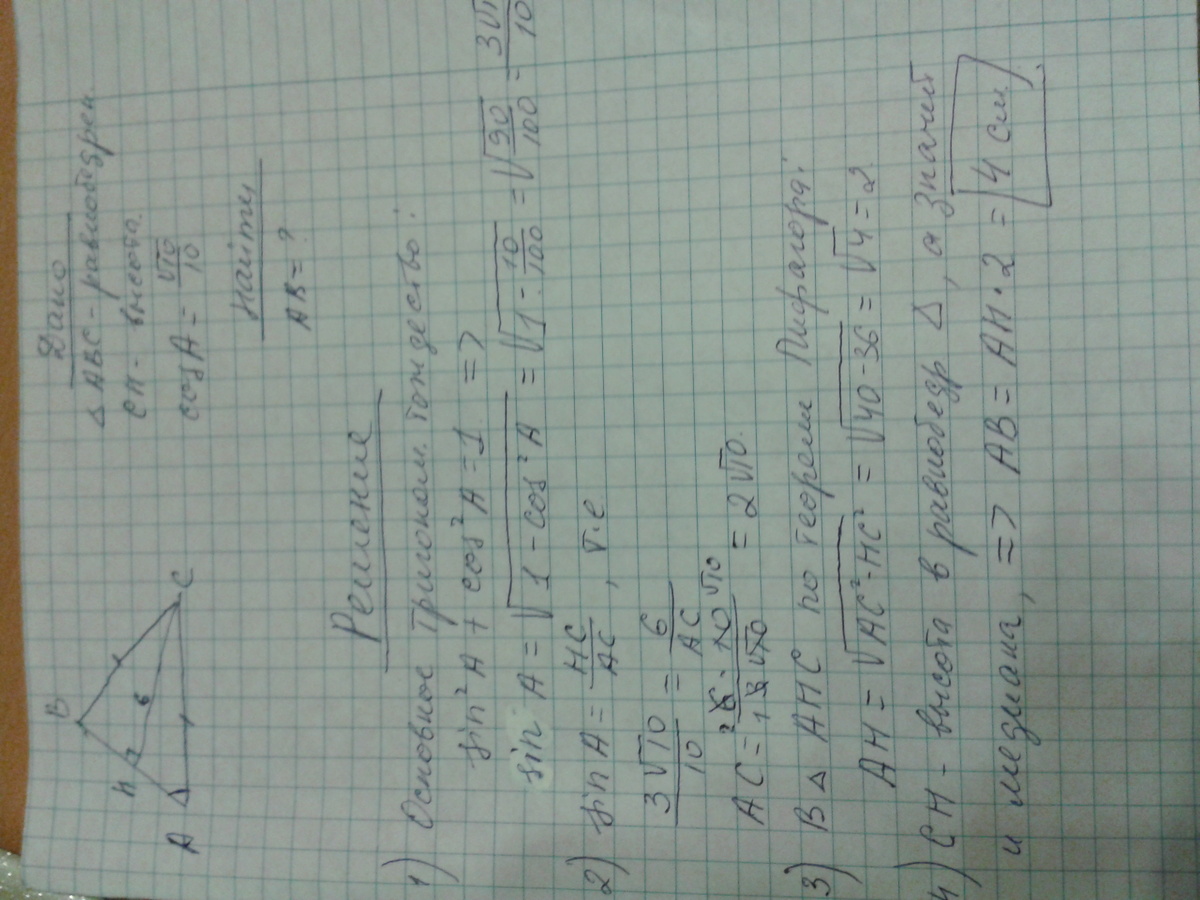 B
H
6
A
C
Дано
△ ABC - равнобедрен
CH - высота
cos A = √10/10
Найти
AB = ?
Решение
1) Основное тригоном. тождество:
sin²A + cos²A = 1 =>
sin A = √(1 - cos²A) = √(1 - 10/100) = √(90/100) = 3√1/10
2) sin A = HC/AC, т.е
3√10/10 = 6/AC
AC = 6·10/3√10 = 2√10.
3) В △ AHC по теореме Пифагора:
AH = √(AC²-HC²) = √(40-36) = √4 = 2
4) CH - высота в равнобедр △, а значит
и медиана, => AB = AH · 2 = 4 см.